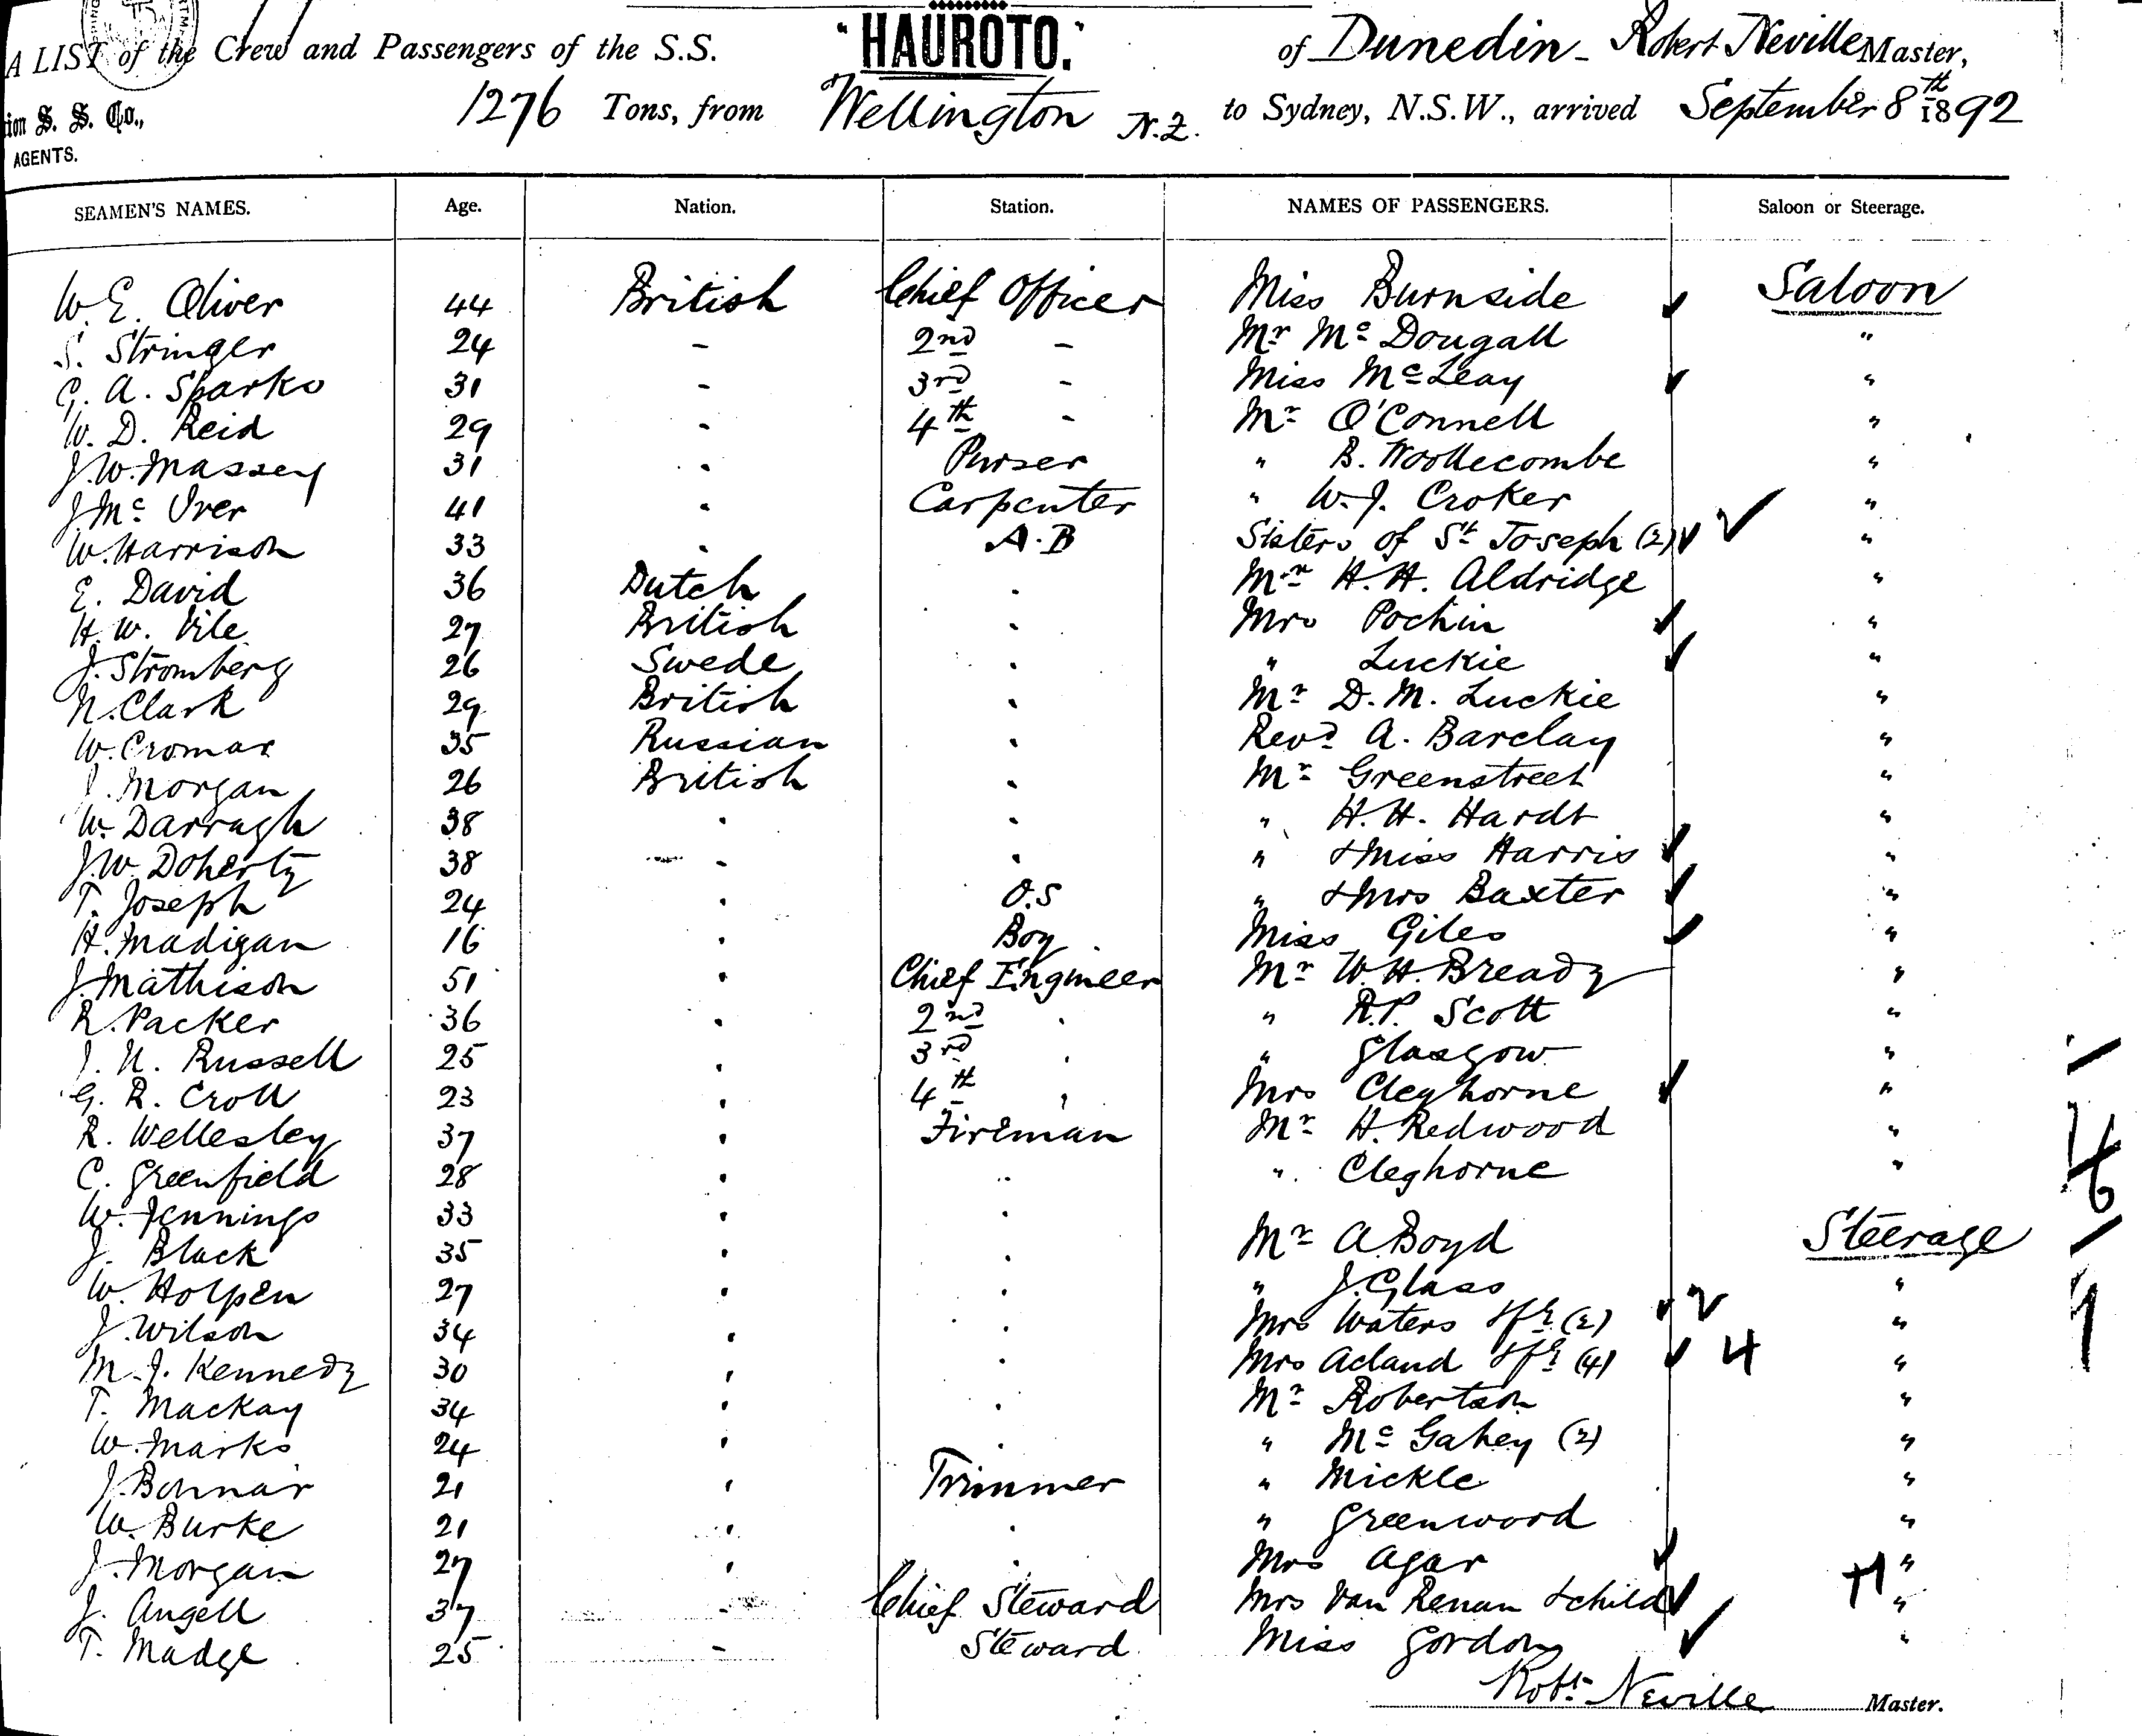 A LIST of the Crew and Passengers of the S.S. "HAUROTO." of Dunedin - Robert Neville Master,
ion S. S. Co., 1276 Tons, from Wellington N.Z. to Sydney, N.S.W., arrived September 8th 1892
AGENTS.
SEAMEN'S NAMES. Age. Nation. Station. NAMES OF PASSENGERS. Saloon or Steerage.
W. E. Oliver 44 British Chief Officer Miss Burnside Saloon
S. Stringer 24 - 2nd - Mr Mc Dougall "
G. A. Sparks 31 - 3rd - Miss McLeay "
W. D. Reid 29 - 4th - Mr O'Connell "
J. W. Massey 31 " Purser " B. Woollecombe "
J. Mc Iver 41 " Carpenter " W. J. Croker "
W. Harrison 33 " A.B Sisters of St Joseph (2) "
E. David 36 Dutch " Mr H. H. Aldridge "
H. W. Vile 27 British " Mrs Pochin "
J. Stromberg 26 Swede " " Luckie "
N. Clark 29 British " Mr D. M. Luckie "
W. Cromar 35 Russian " Revd A. Barclay "
J. Morgan 26 British " Mr Greenstreet "
W. Darragh 38 " " " H. H. Hardt "
J. W. Doherty 38 " " " & Miss Harris "
T. Joseph 24 " O.S " & Mrs Baxter "
H. Madigan 16 " Boy Miss Giles "
J. Mathison 51 " Chief Engineer Mr W. H. Bready "
R. Packer 36 " 2nd " " R. P. Scott "
J. N. Russell 25 " 3rd " " Glasgow "
G. R. Croll 23 " 4th " Mrs Cleghorne "
R. Wellesley 37 " Fireman Mr H. Redwood "
C. Greenfield 28 " " " Cleghorne "
W. Jennings 33 " "
J. Black 35 " " Mr A. Boyd Steerage
W. Holpen 27 " " " J. Glass "
J. Wilson 34 " " Mrs Waters & fy (2) 2 "
M. J. Kennedy 30 " " Mrs Acland & fy (4) 4 "
T. Mackay 34 " " Mr Robertson "
W. Marks 24 " " " Mc Gahey (2) "
J. Bonnar 21 " Trimmer " Mickle "
W. Burke 21 " " " Greenwood "
J. Morgan 27 " " Mrs Agar "
J. Angell 37 - Chief Steward Mrs Van Renan & child "
T. Madge 25 - Steward Miss Gordon "
Robt. Neville Master.